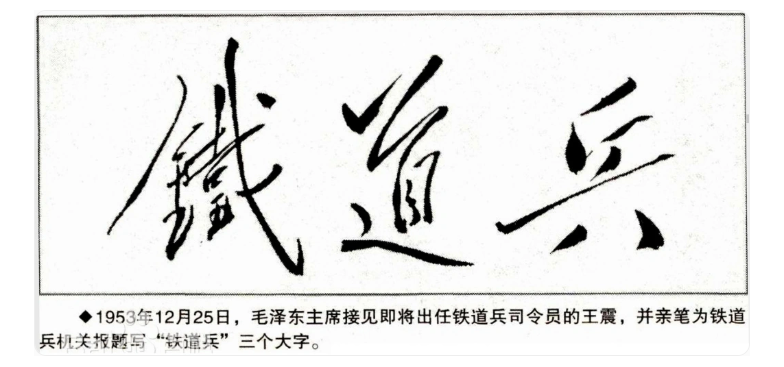 鐵道兵
◆1953年12月25日，毛泽东主席接见即将出任铁道兵司令员的王震，并亲笔为铁道
兵机关报题写“铁道兵”三个大字。